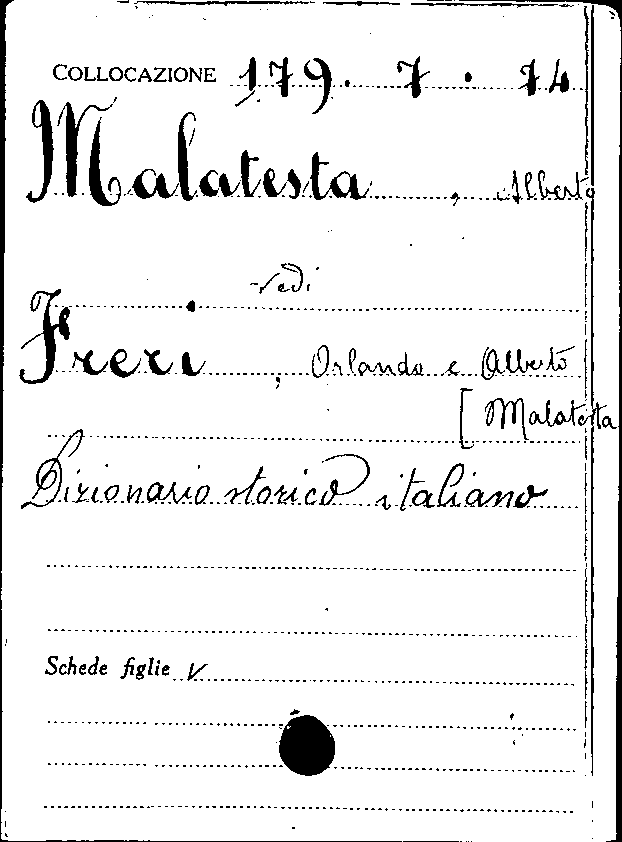 COLLOCAZIONE 179. 7 . 74
Malatesta , Alberto
vedi
Freri , Orlando e Alberto
[Malatesta
Dizionario storico italiano
Schede figlie V